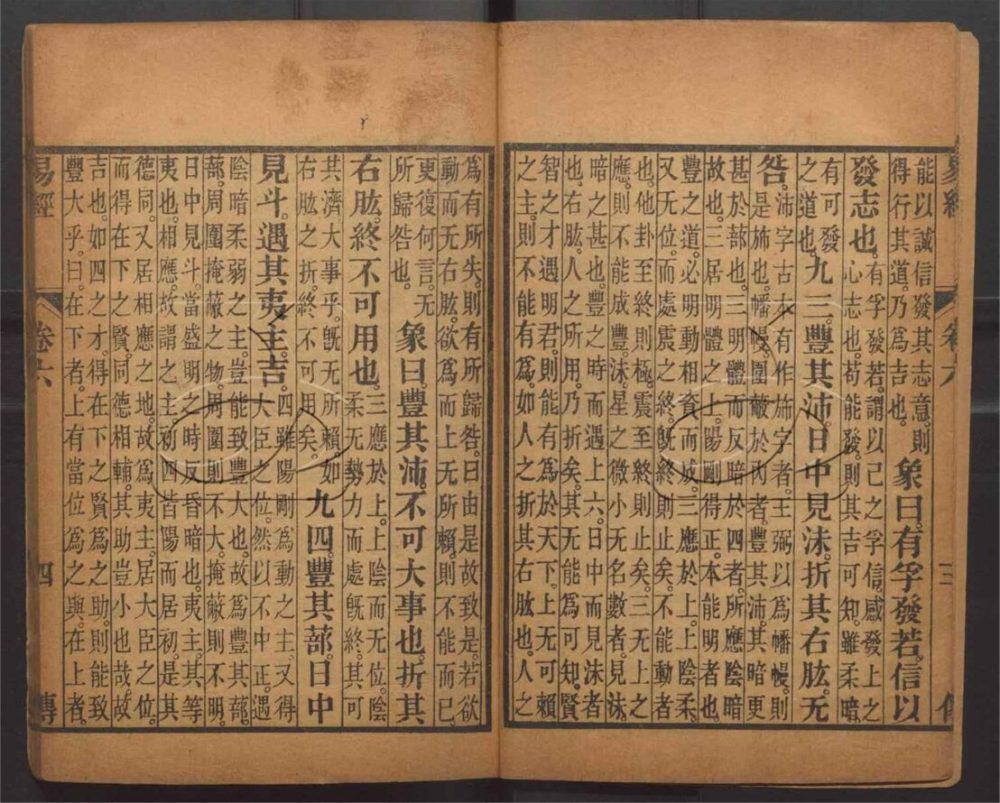 易經　卷六　三　傳
能以誠信發其志意。則
得行其道。乃爲吉也。
象曰。有孚發若。信以
發志也。
有孚發若。謂以己之孚信。感發上之
心志也。苟能發。則其吉可知。雖柔暗。
有可發
之道也。
九三。豐其沛。日中見沬。折其右肱。无
咎。
沛字古本有作旆字者。王弼以爲幡幔。則
是旆也。幡幔圍蔽於內者。豐其沛。其暗更
甚於蔀也。三明體而反暗於四者。所應陰暗
故也。三居明體之上。陽剛得正。本能明者也。
豐之道。必明動相資而成。三應於上。上陰柔。
又无位。而處震之終。旣終則止矣。不能動者
也。他卦至終則極。震至終則止矣。三无上之
應。則不能成豐。沬。星之微小无名數者。見沬。
暗之甚也。豐之時。而遇上六。日中而見沬者
也。右肱。人之所用。乃折矣。其无能爲可知。賢
智之才。遇明君。則能有爲於天下。上无可賴
之主。則不能有爲。如人之折其右肱也。人之
爲有所失。則有所歸咎。曰由是故致是。若欲
動而无右肱。欲爲而上无所賴。則不能而已。
更復何言。无
所歸咎也。
象曰。豐其沛。不可大事也。折其
右肱。終不可用也。
三應於上。上陰而无位。陰
柔无勢力。而處旣終。其可
其濟大事乎。旣无所賴。如
右肱之折。終不可用矣。
九四。豐其蔀。日中
見斗。遇其夷主。吉。
四雖陽剛。爲動之主。又得
大臣之位。然以不中正。遇
陰暗柔弱之主。豈能致豐大也。故爲豐其蔀。
蔀。周圍掩蔽之物。周圍則不大。掩蔽則不明。
日中見斗。當盛明之時。反昏暗也。夷主。其等
夷也。相應。故謂之主。初四皆陽而居初。是其
德同。又居相應之地。故爲夷主。居大臣之位。
而得在下之賢。同德相輔。其助豈小也哉。故
吉也。如四之才。得在下之賢爲之助。則能致
豐大乎。曰。在下者。上有當位爲之與。在上者。
易經　卷六　四　傳